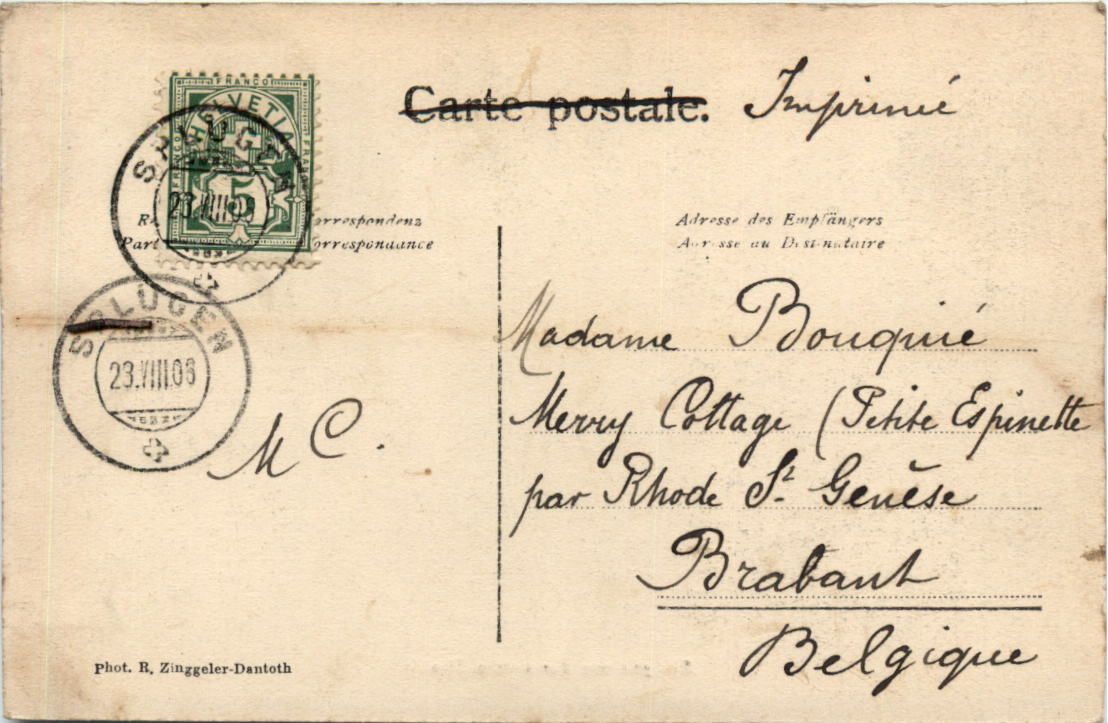 Carte postale. Imprimé
FRANCO
HELVETIA
FRANCO
5
SPLÜGEN
23.VIII.06
orrespondenz
Part orrespondance
Adresse des Empfängers
Adresse au Destinataire
SPLÜGEN
23.VIII.06
M C.
Madame Bouquié
Merry Cottage (Petite Espinette
par Rhode St. Genèse
Brabant
Belgique
Phot. R. Zinggeler-Dantoth